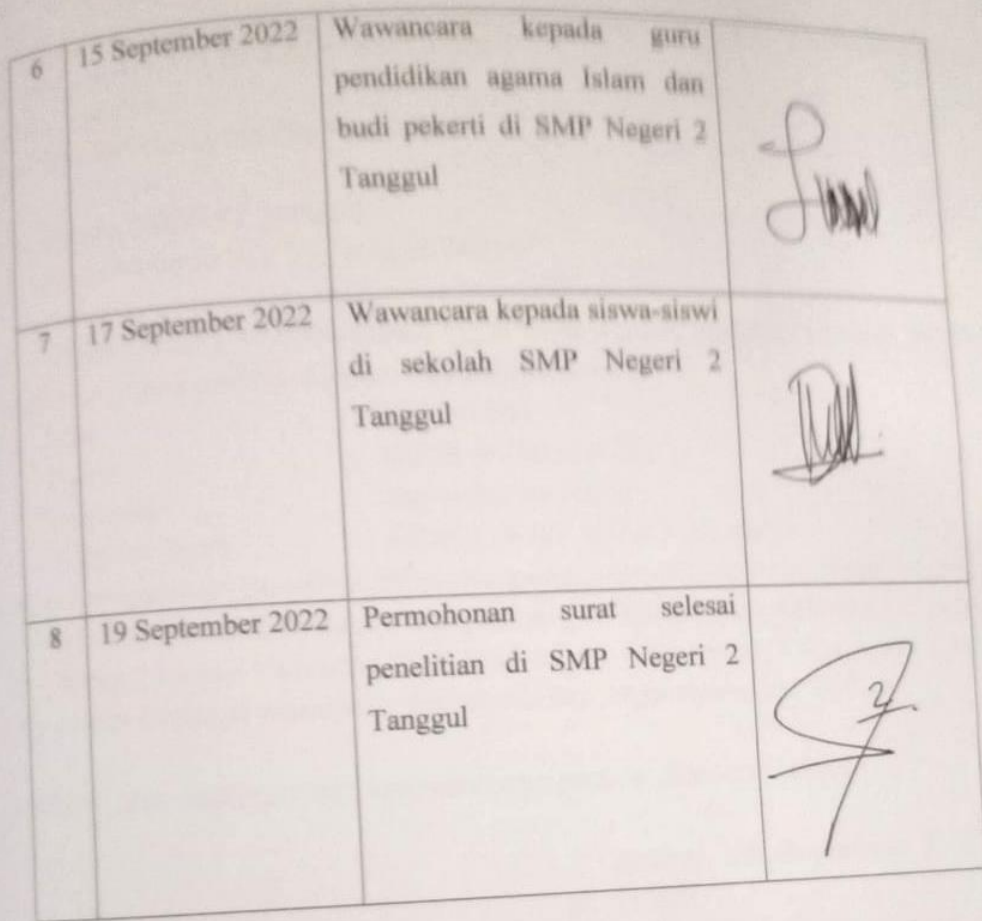 6 15 September 2022 Wawancara kepada guru
pendidikan agama Islam dan
budi pekerti di SMP Negeri 2
Tanggul
7 17 September 2022 Wawancara kepada siswa-siswi
di sekolah SMP Negeri 2
Tanggul
8 19 September 2022 Permohonan surat selesai
penelitian di SMP Negeri 2
Tanggul